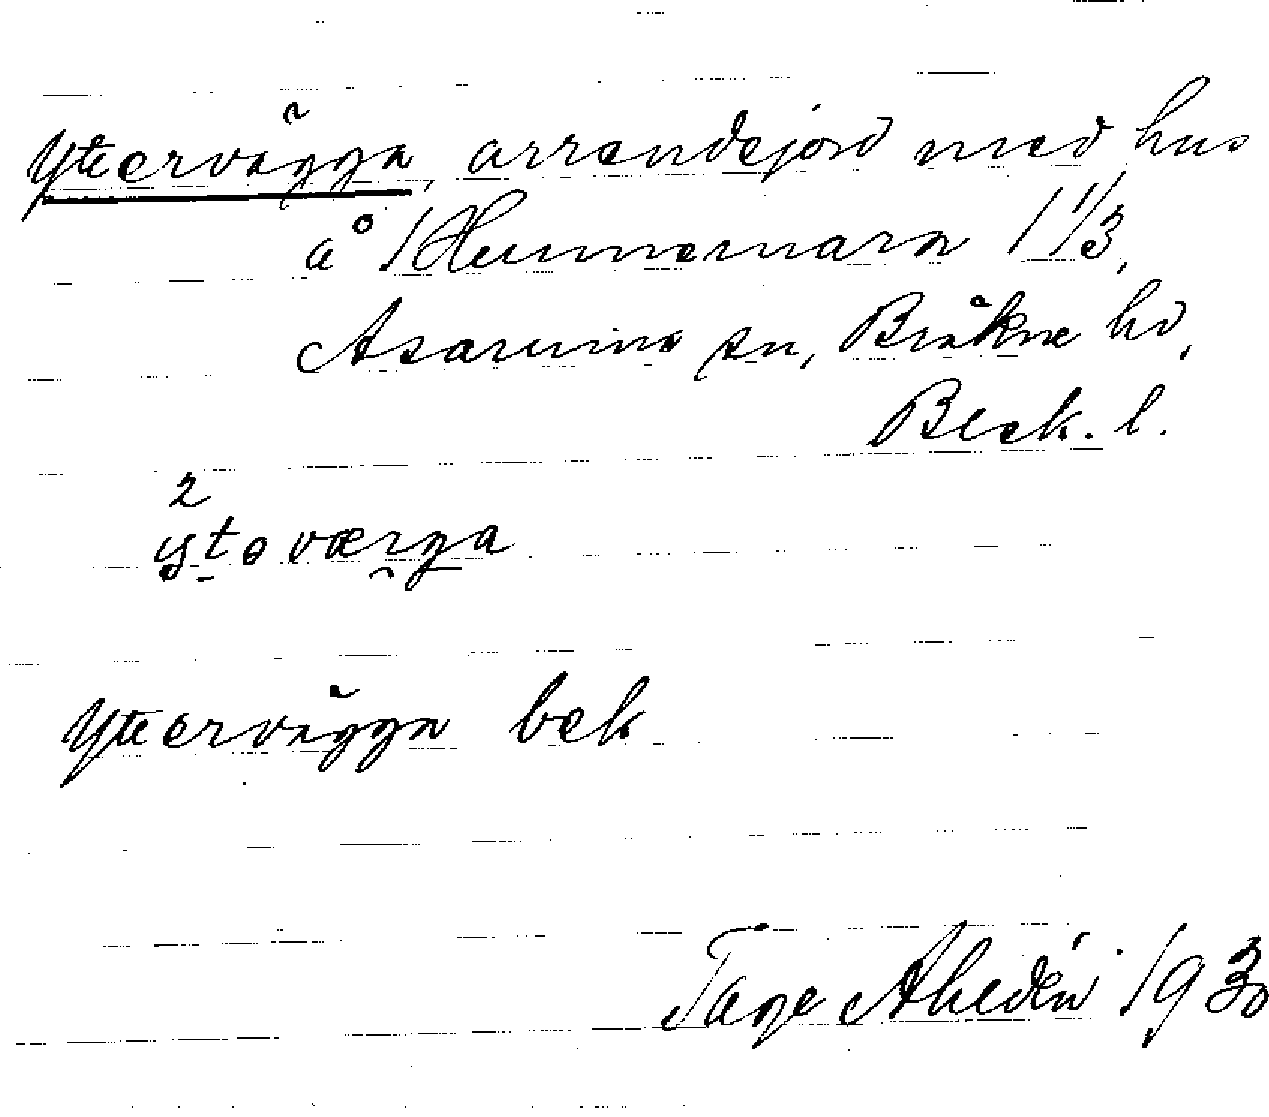 Yttervägga, arrendejord med hus
å Hunnemara 1 1/3,
Asarums sn, Bräkne hd,
Blek. l.
2
ytoværga
Yttervägga bek
Tage Ahldén 1930